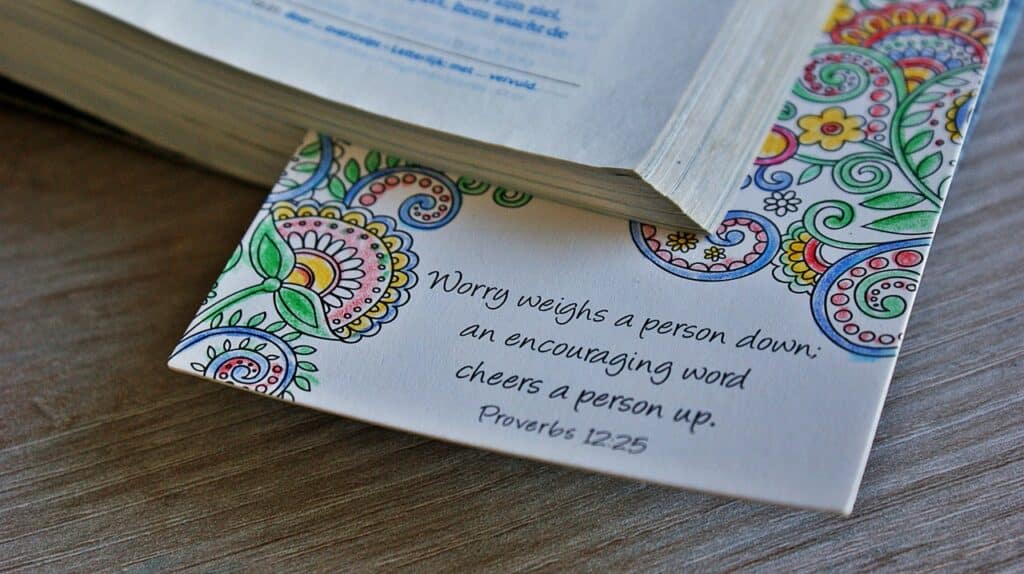 zijn ziel,
hem wacht de
Letterlijk: met ... vervuld.
Worry weighs a person down;
an encouraging word
cheers a person up.
Proverbs 12:25